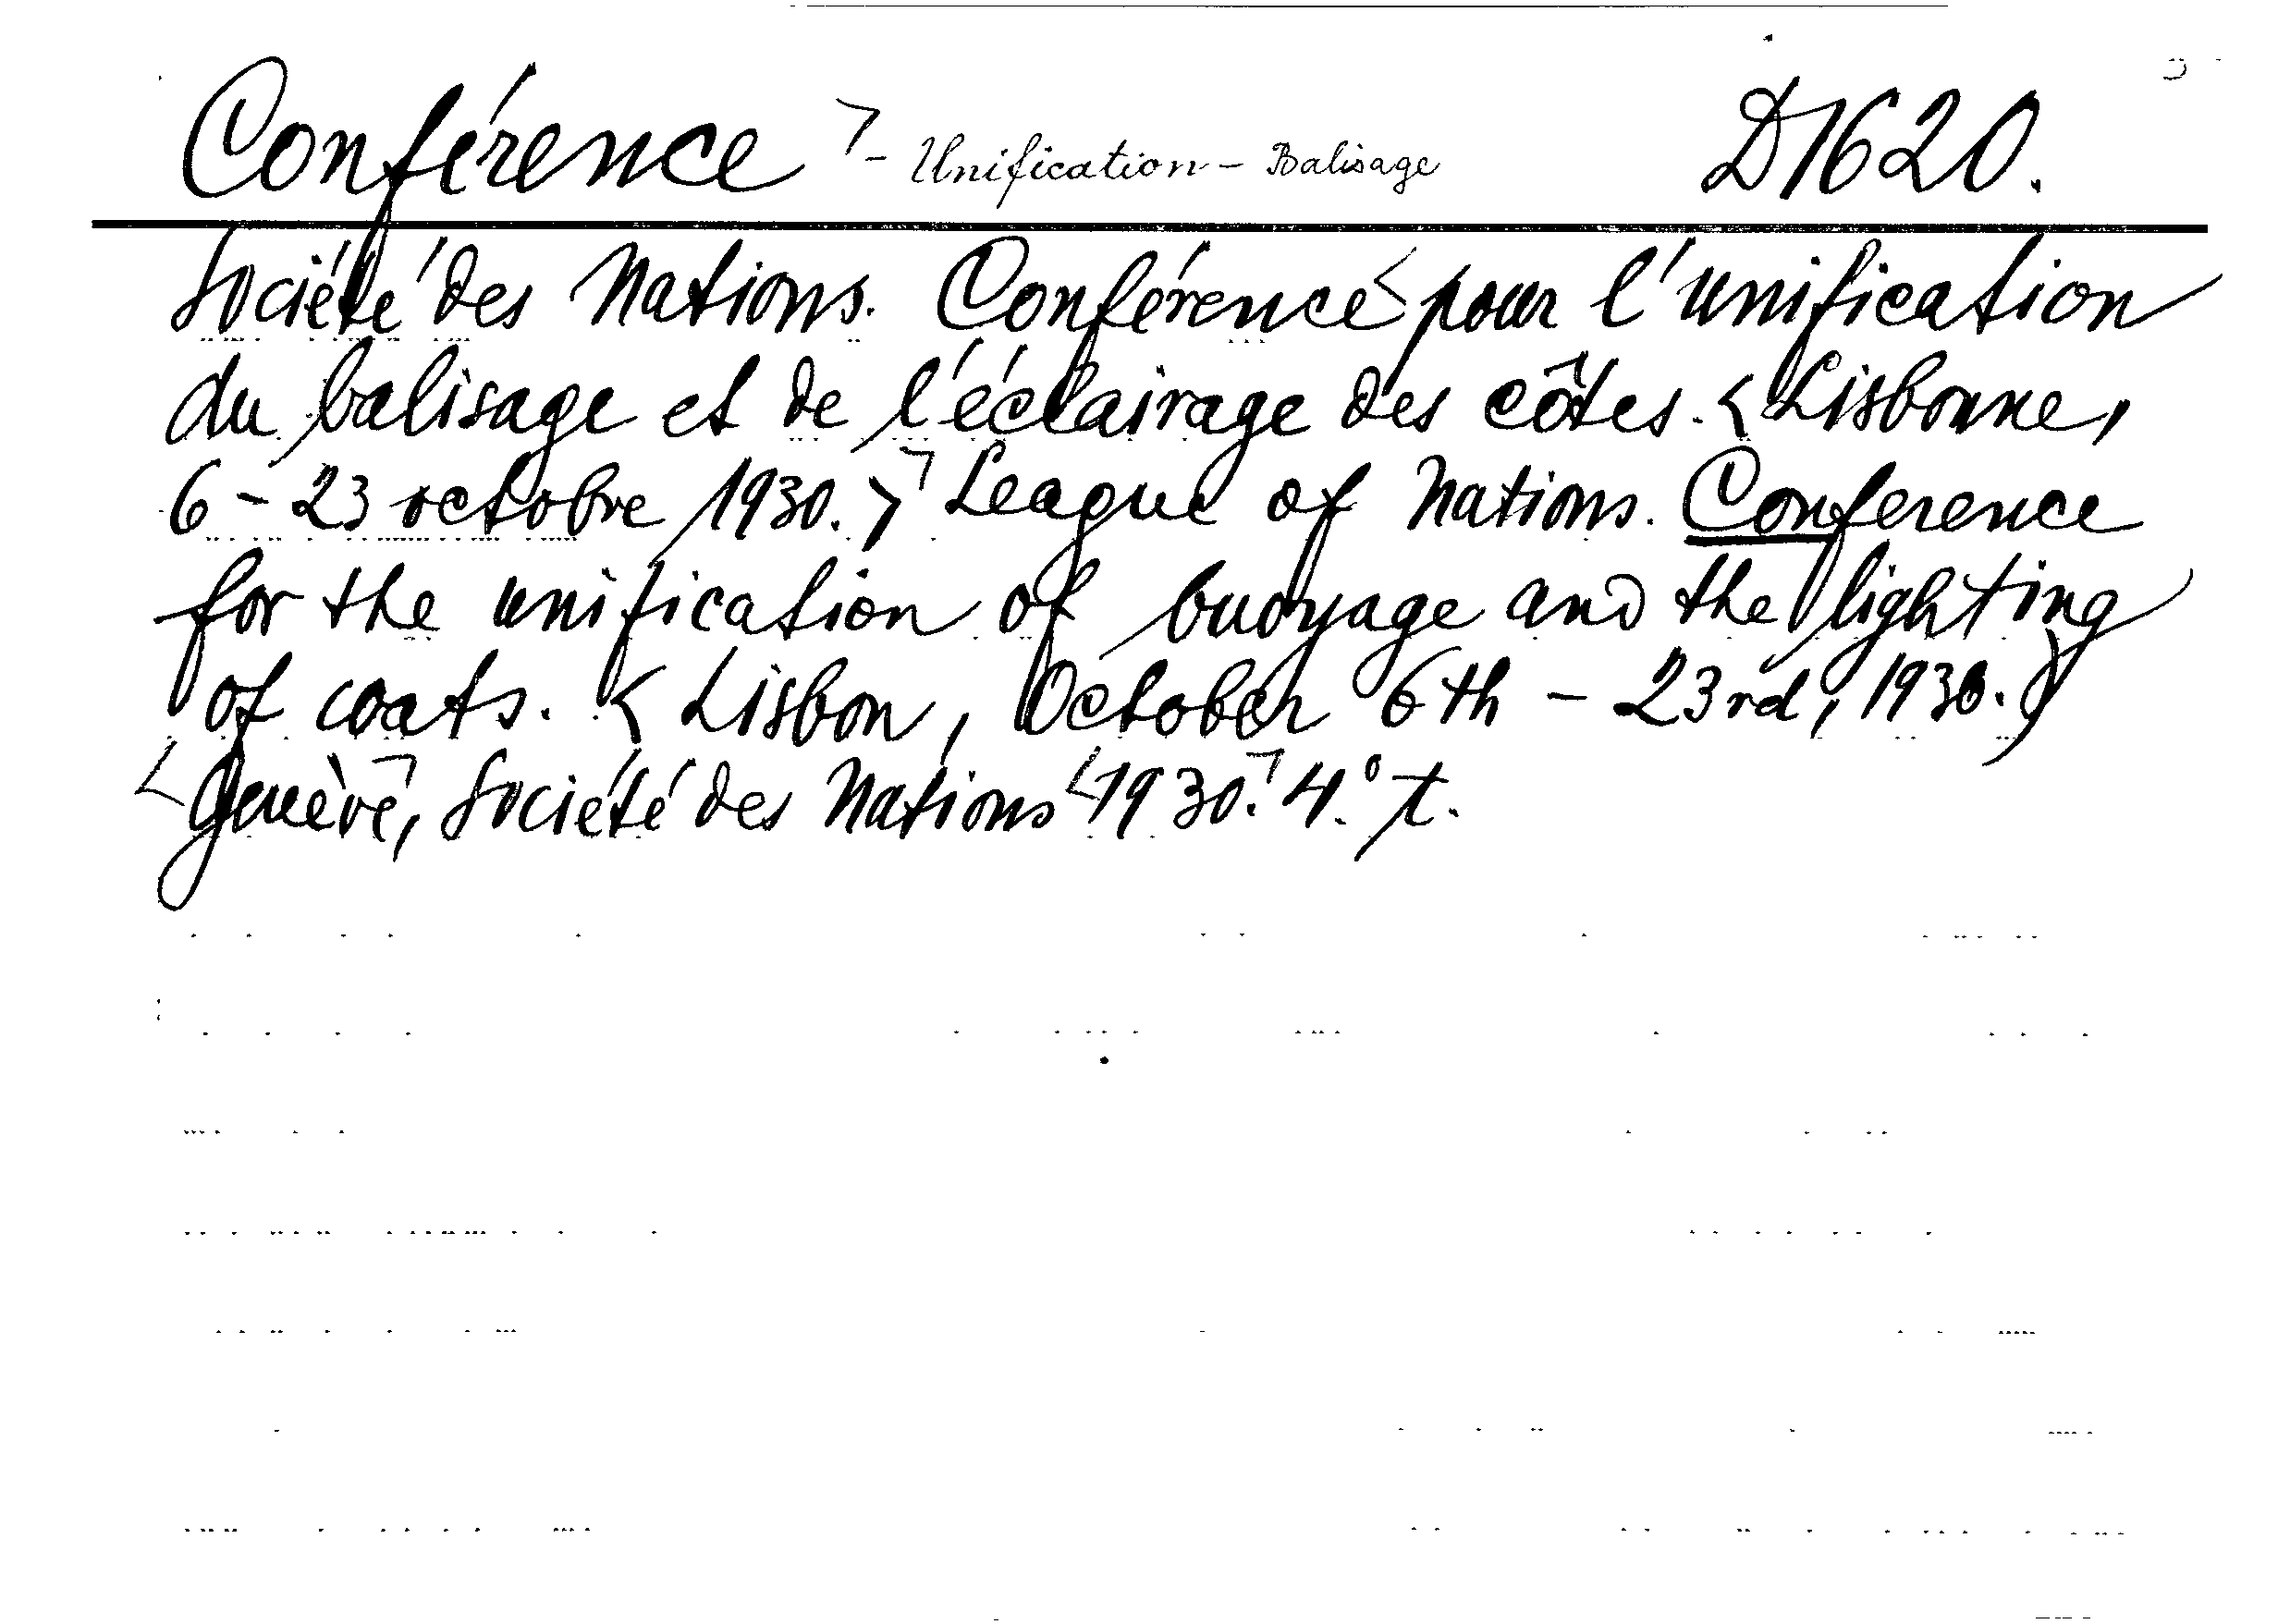 Conférence ⌝ - Unification - Balisage D1620.
Société des Nations. Conférence < pour l'unification
du balisage et de l'éclairage des côtes. < Lisbonne,
6 - 23 octobre 1930. > ⌝ League of Nations. Conference
for the unification of buoyage and the lighting
of coats. < Lisbon, October 6th - 23rd, 1930. )
< Genève, ⌝ Société des Nations < 1930. ⌝ 4.° t.